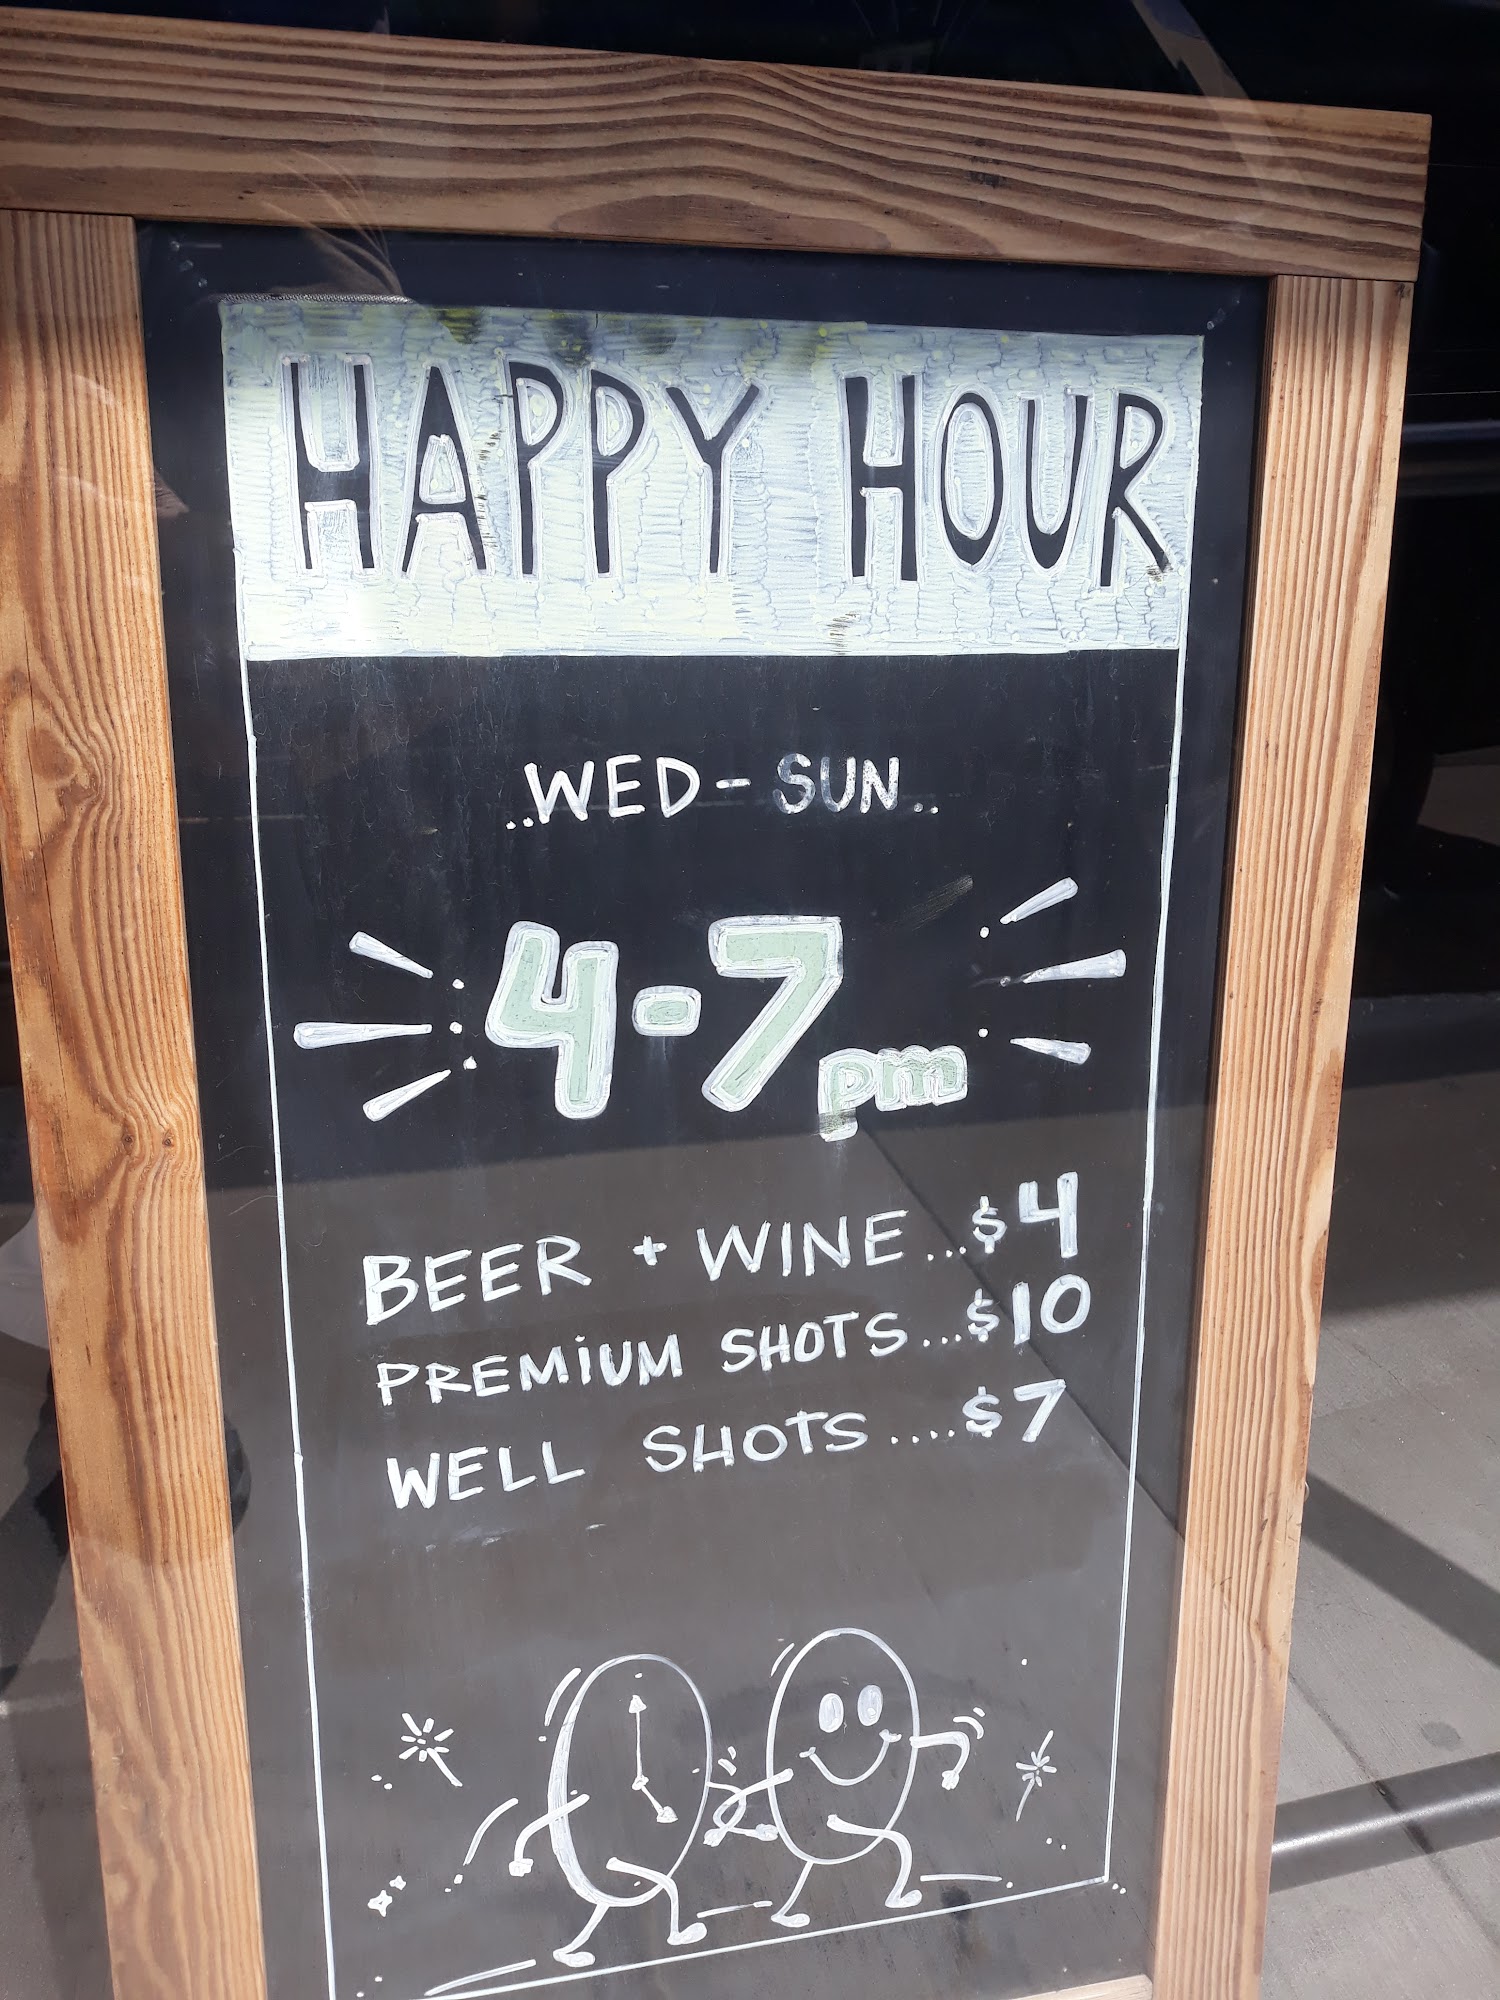 HAPPY HOUR
..WED-SUN..
4-7pm
BEER + WINE...$4
PREMiUM SHOTS...$10
WELL SHOTS....$7